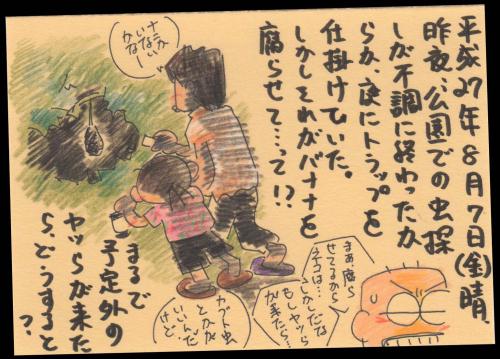 平成27年8月7日(金)晴、
昨夜、公園での虫探
しが不調に終わったか
らか、庭にトラップを
仕掛けていた。
しかしそれがバナナを
腐らせて…って!?
ナナ
かな
まあ、腐ら
せてるから
ネコは…
しかしだな
もし、ヤツら
が来たら…
カブト虫
とかが
いいんだ
けど
まるで
予定外の
ヤツらが来た
ら、どうすると
?